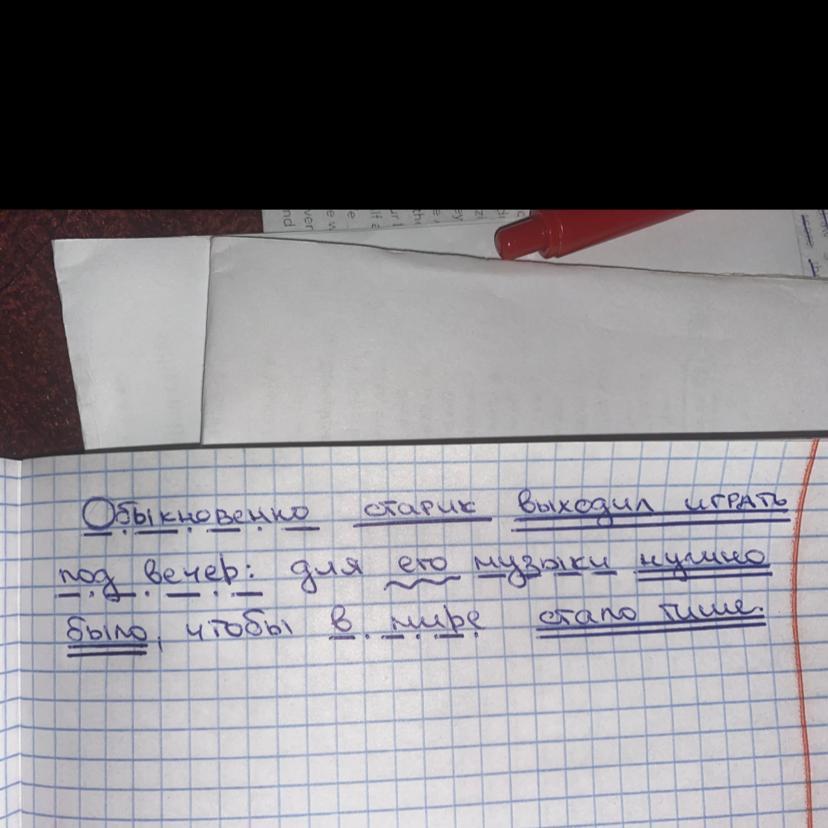 Обыкновенно старик выходил играть
под вечер: для его музыки нужно
было, чтобы в мире стало тише.